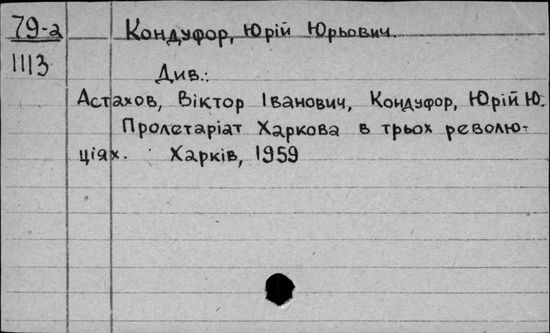 79-а Кондуфор, Юрій Юрьович.
1113
Див.:
Астахов, Віктор Іванович, Кондуфор, Юрій Ю.
Пролетаріат Харкова в трьох револю-
ціях. Харків, 1959